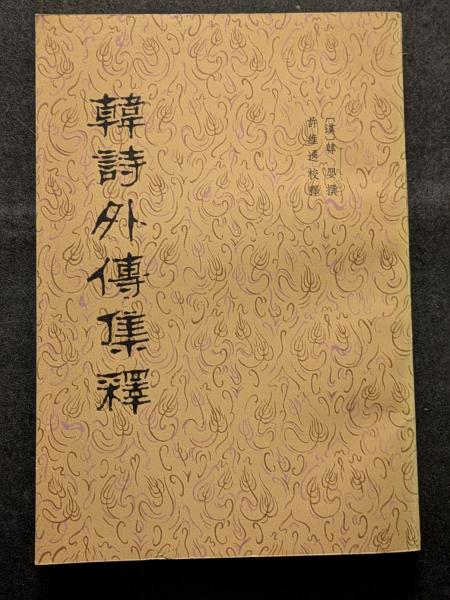 韓詩外傳集釋
〔漢〕韓嬰撰
許維遹校釋